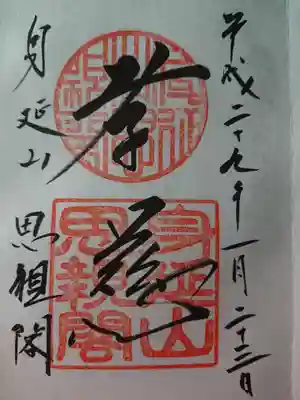 平成二十九年一月二十三日
孝慈
身延山 思親閣
身延山
思親閣